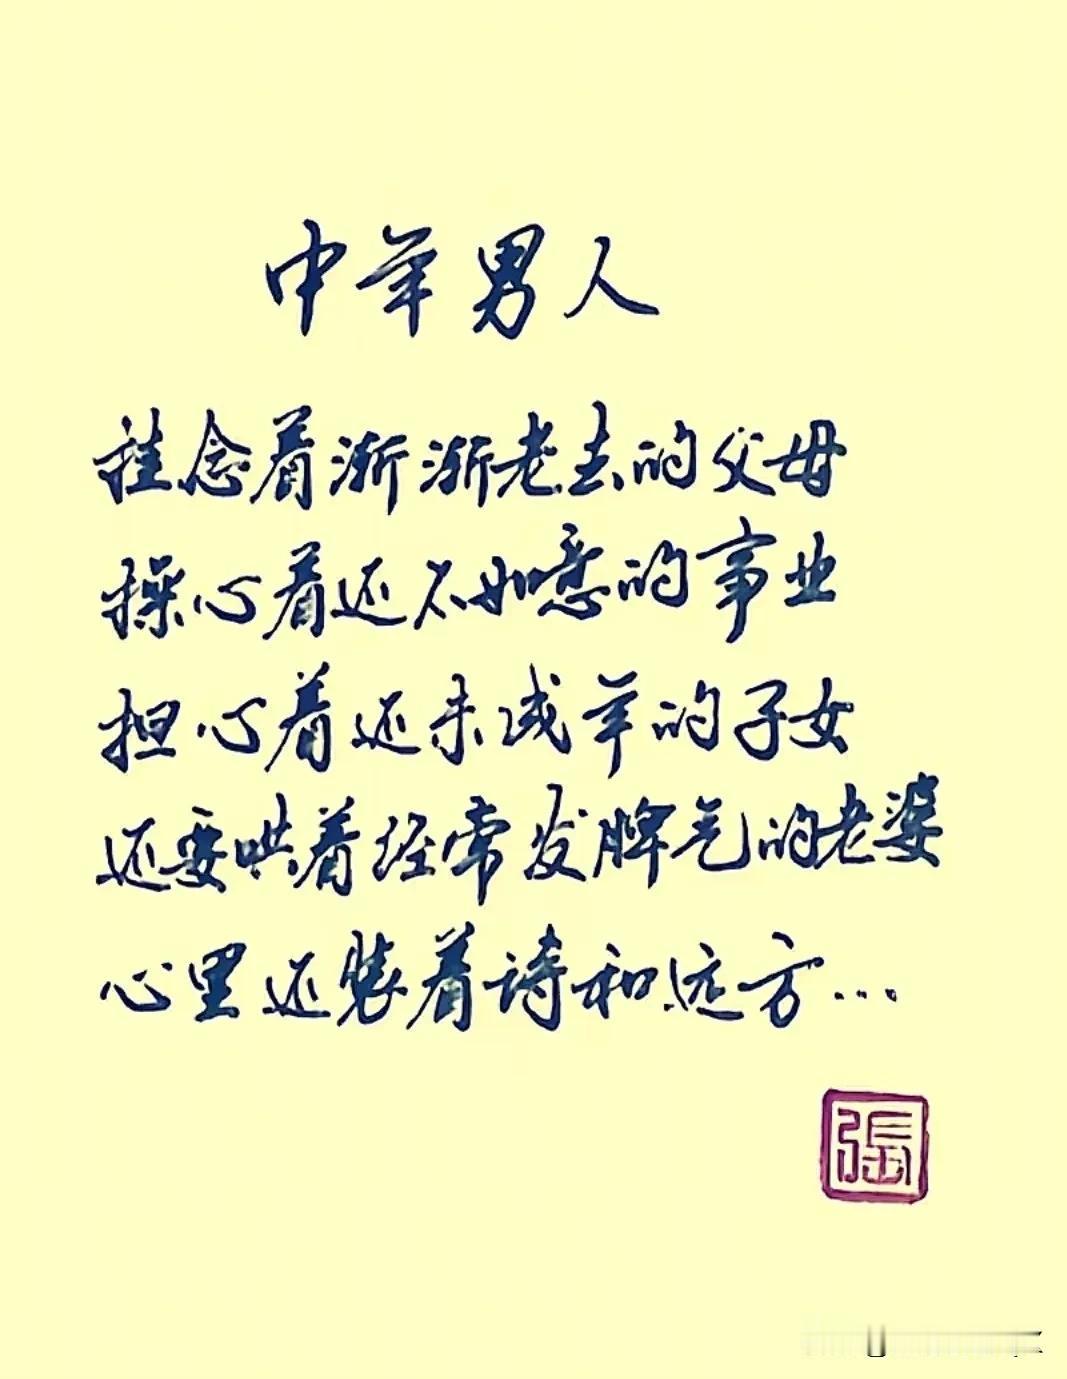 中年男人
挂念着渐渐老去的父母
操心着还不如意的事业
担心着还未成年的子女
还要哄着经常发脾气的老婆
心里还装着诗和远方...
張